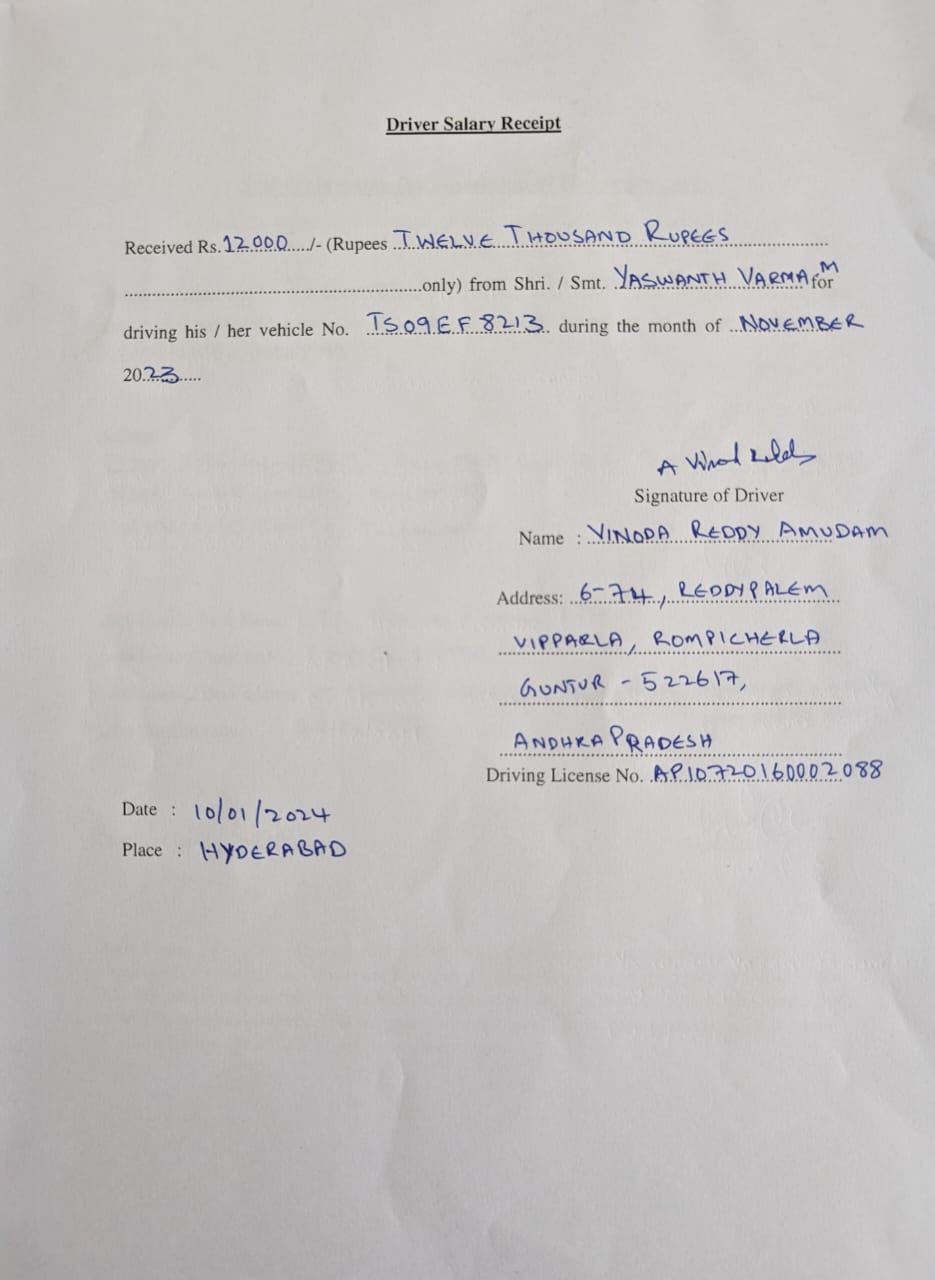 Driver Salary Receipt
Received Rs. 12000..../- (Rupees ..TWELVE THOUSAND RUPEES......................
..............................................................only) from Shri. / Smt. YASWANTH VARMA M for
driving his / her vehicle No. TS09EF8213. during the month of ..NOVEMBER
20..23.....
A
Signature of Driver
Name : VINODA REDDY AMUDAM
Address: ..6-74, REDDYPALEM
VIPPARLA, ROMPICHERLA
GUNTUR - 522617,
ANDHRA PRADESH
Driving License No. AP10720160002088
Date : 10/01/2024
Place : HYDERABAD